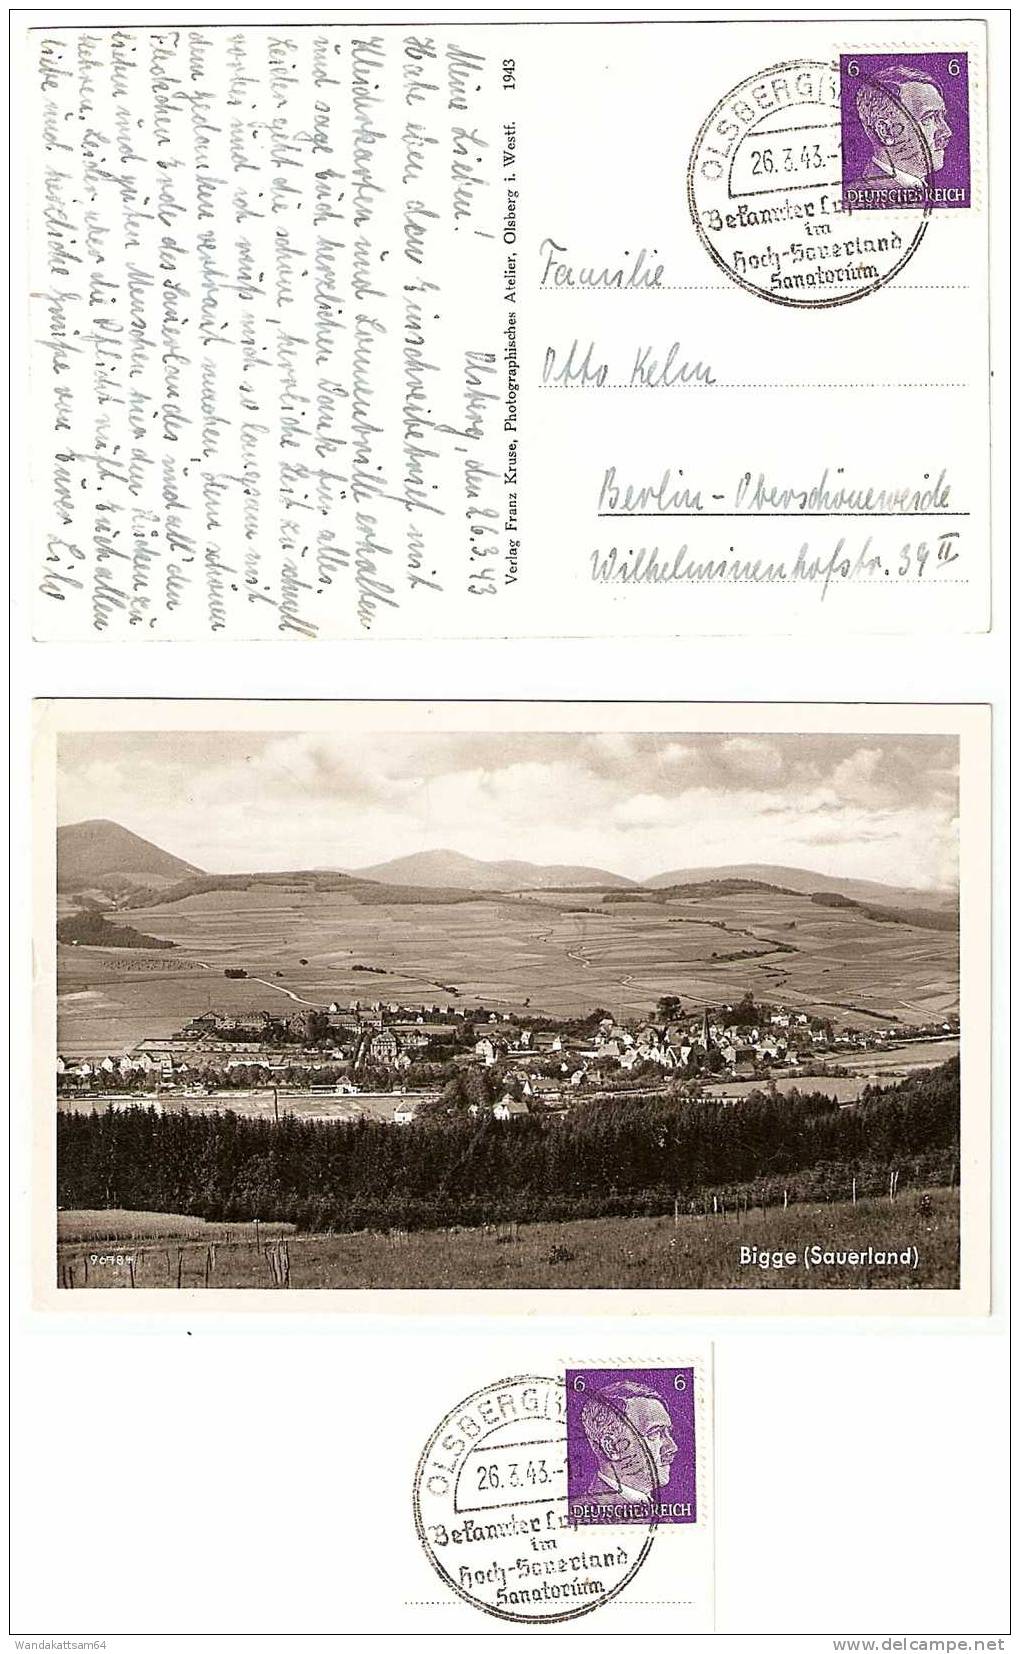 Meine Lieben!
Olsberg, den 26.3.43
Habe eben den Einschreibebrief mit
Kleiderkarten und Sonnenbrille erhalten
und sage Euch herzlichen Dank für alles.
Leider geht die schöne, herrliche Zeit zu schnell
vorbei und ich muß mich so langsam mit
dem Gedanken vertraut machen, dem schönen
Fleckchen Erde des Sauerlandes und all' den
lieben und guten Menschen hier den Rücken zu
kehren. Leider aber die Pflicht ruft. Euch allen
liebe und herzliche Grüße von Eurer Lilo
Verlag Franz Kruse, Photographisches Atelier, Olsberg i. Westf. 1943
6 6
DEUTSCHES REICH
OLSBERG
26.3.43.-1
Bekannter Luf
im
Hoch-Sauerland
Sanatorium
Familie
Otto Kelm
Berlin - Oberschöneweide
Wilhelminenhofstr. 39 II
96784
Bigge (Sauerland)
6 6
DEUTSCHES REICH
OLSBERG
26.3.43.-1
Bekannter Luf
im
Hoch-Sauerland
Sanatorium
Wandakattsam64
www.delcampe.net